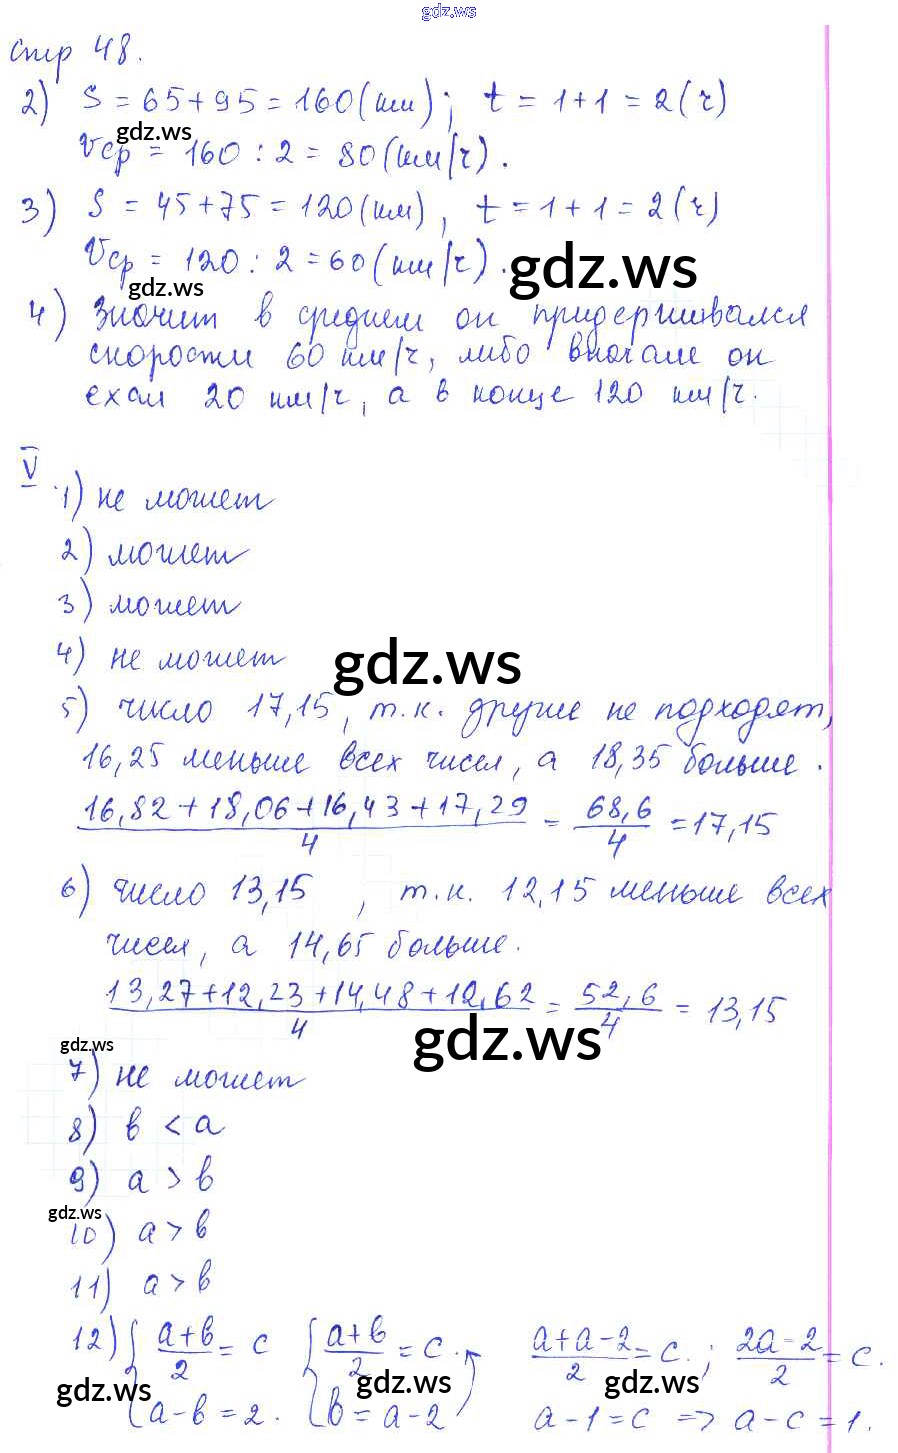 gdz.ws
стр 48.
2) S = 65+95 = 160 (км); t = 1+1 = 2 (ч)
gdz.ws
Vср = 160 : 2 = 80 (км/ч).
3) S = 45+75 = 120 (км), t = 1+1 = 2 (ч)
Vср = 120 : 2 = 60 (км/ч).
gdz.ws
gdz.ws
4) Значит в среднем он придерживался
скорости 60 км/ч, либо вначале он
ехал 20 км/ч, а в конце 120 км/ч.
V
1) не может
2) может
3) может
4) не может
gdz.ws
5) число 17,15, т.к. другие не подходят,
16,25 меньше всех чисел, а 18,35 больше.
(16,82+18,06+16,43+17,29)/4 = 68,6/4 = 17,15
6) число 13,15, т.к. 12,15 меньше всех
чисел, а 14,65 больше.
(13,27+12,23+14,48+12,62)/4 = 52,6/4 = 13,15
gdz.ws
gdz.ws
7) не может
8) в < а
9) а > в
gdz.ws
10) а > в
11) а > в
12) { (а+в)/2 = с { (а+в)/2 = с. (а+а-2)/2 = с.; (2а-2)/2 = с.
gdz.ws gdz.ws gdz.ws
а-в = 2. в = а-2 а-1 = с => а-с = 1.